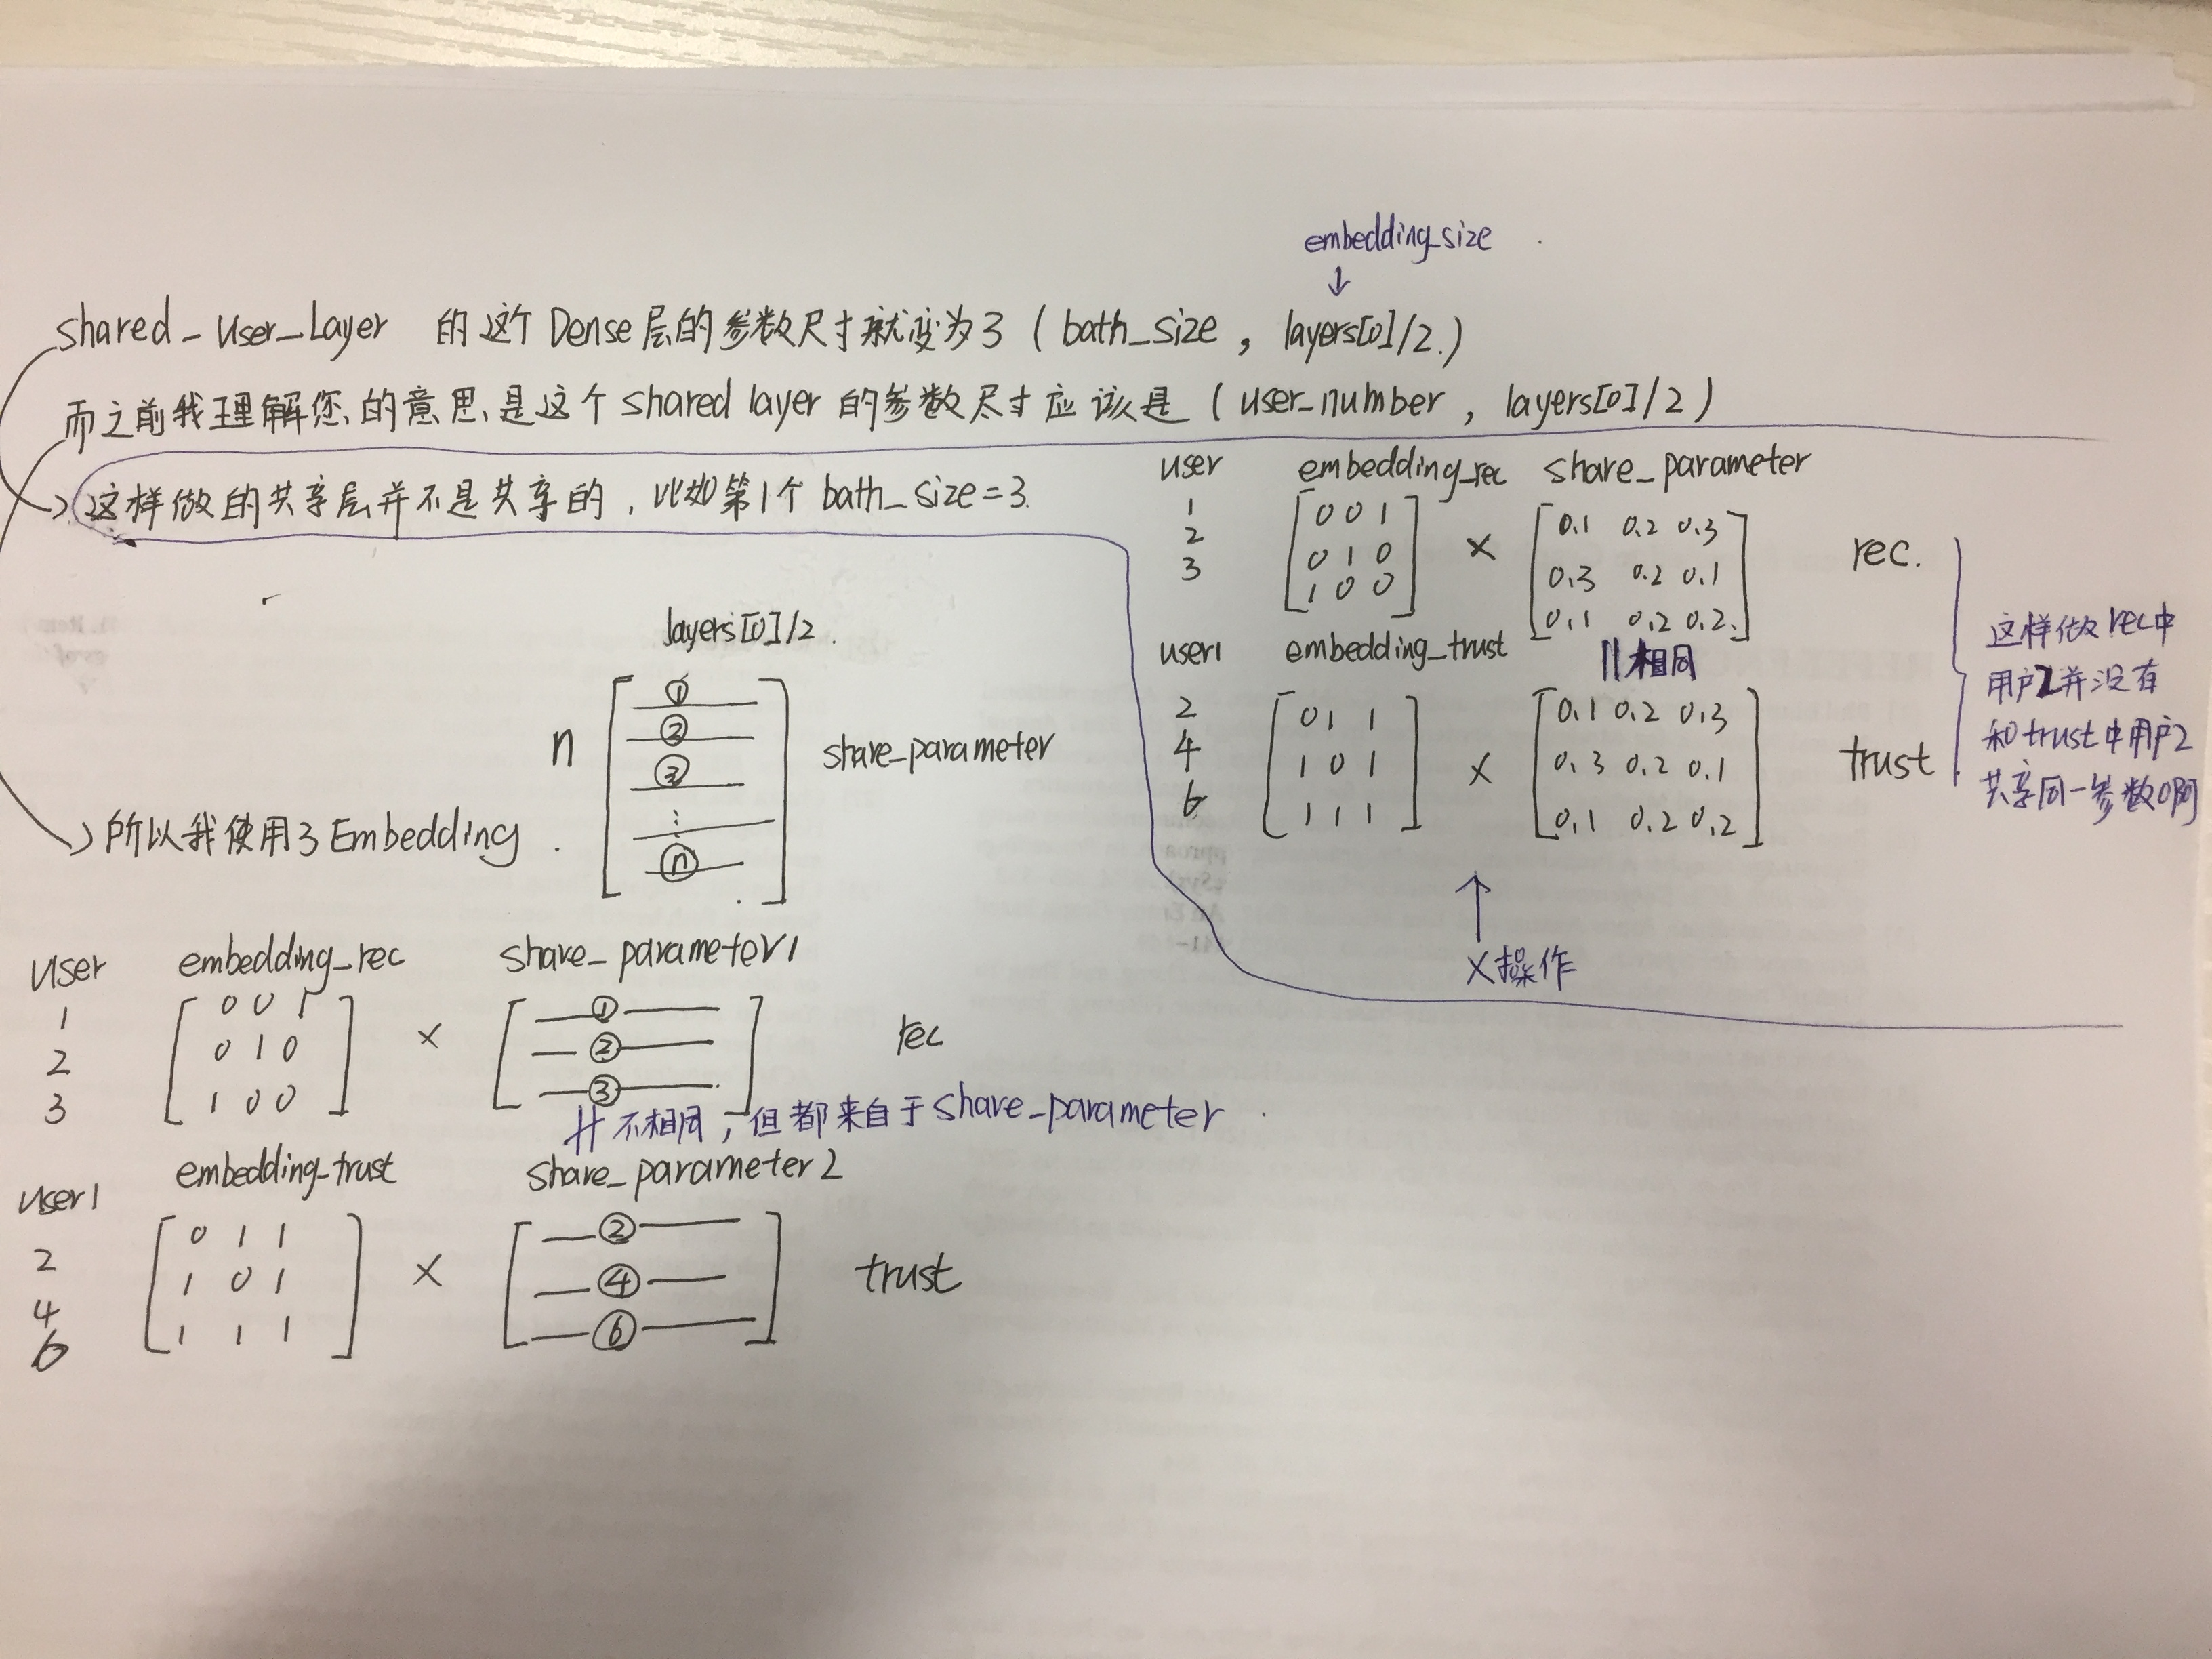 embedding_size
↓
shared_user_Layer 的这个 Dense层的参数尺寸就变为3 ( bath_size , layers[0]/2.)
而之前我理解您的意思是这个 shared layer 的参数尺寸应该是 ( user_number , layers[0]/2 )
这样做的共享层并不是共享的 , 比如第1个 bath_size = 3.
user embedding_rec share_parameter
1 [ 0 0 1 0.1 0.2 0.3
2 0 1 0 × 0.3 0.2 0.1 rec.
3 1 0 0 ] 0.1 0.2 0.2.
|| 相同
user1 embedding_trust
2 0 1 1 0.1 0.2 0.3
4 1 0 1 × 0.3 0.2 0.1 trust
6 1 1 1 0.1 0.2 0.2
这样做rec中
用户2并没有
和trust中用户2
共享同一参数啊
↑
X操作
layers[0]/2.
n ①
②
③
⋮
ⓝ
share_parameter
所以我使用3 Embedding .
user embedding_rec share_parameter1
1 0 0 1 ①
2 0 1 0 × ② rec
3 1 0 0 ③
不相同 , 但都来自于 share_parameter .
user1 embedding_trust share_parameter2
2 0 1 1 ②
4 1 0 1 × ④ trust
6 1 1 1 ⑥